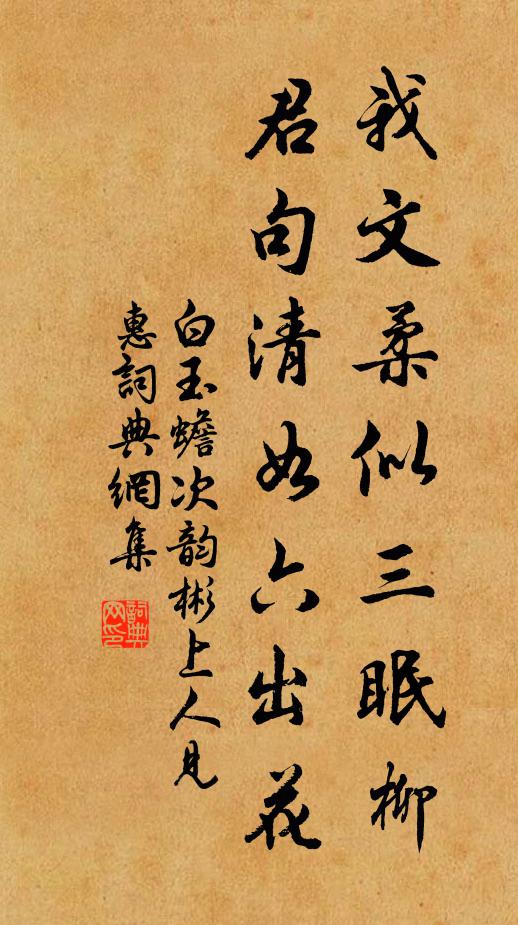 我文柔似三眠柳
君句清如六出花
白玉蟾次韵彬上人见
惠詞典網集
詞典网印